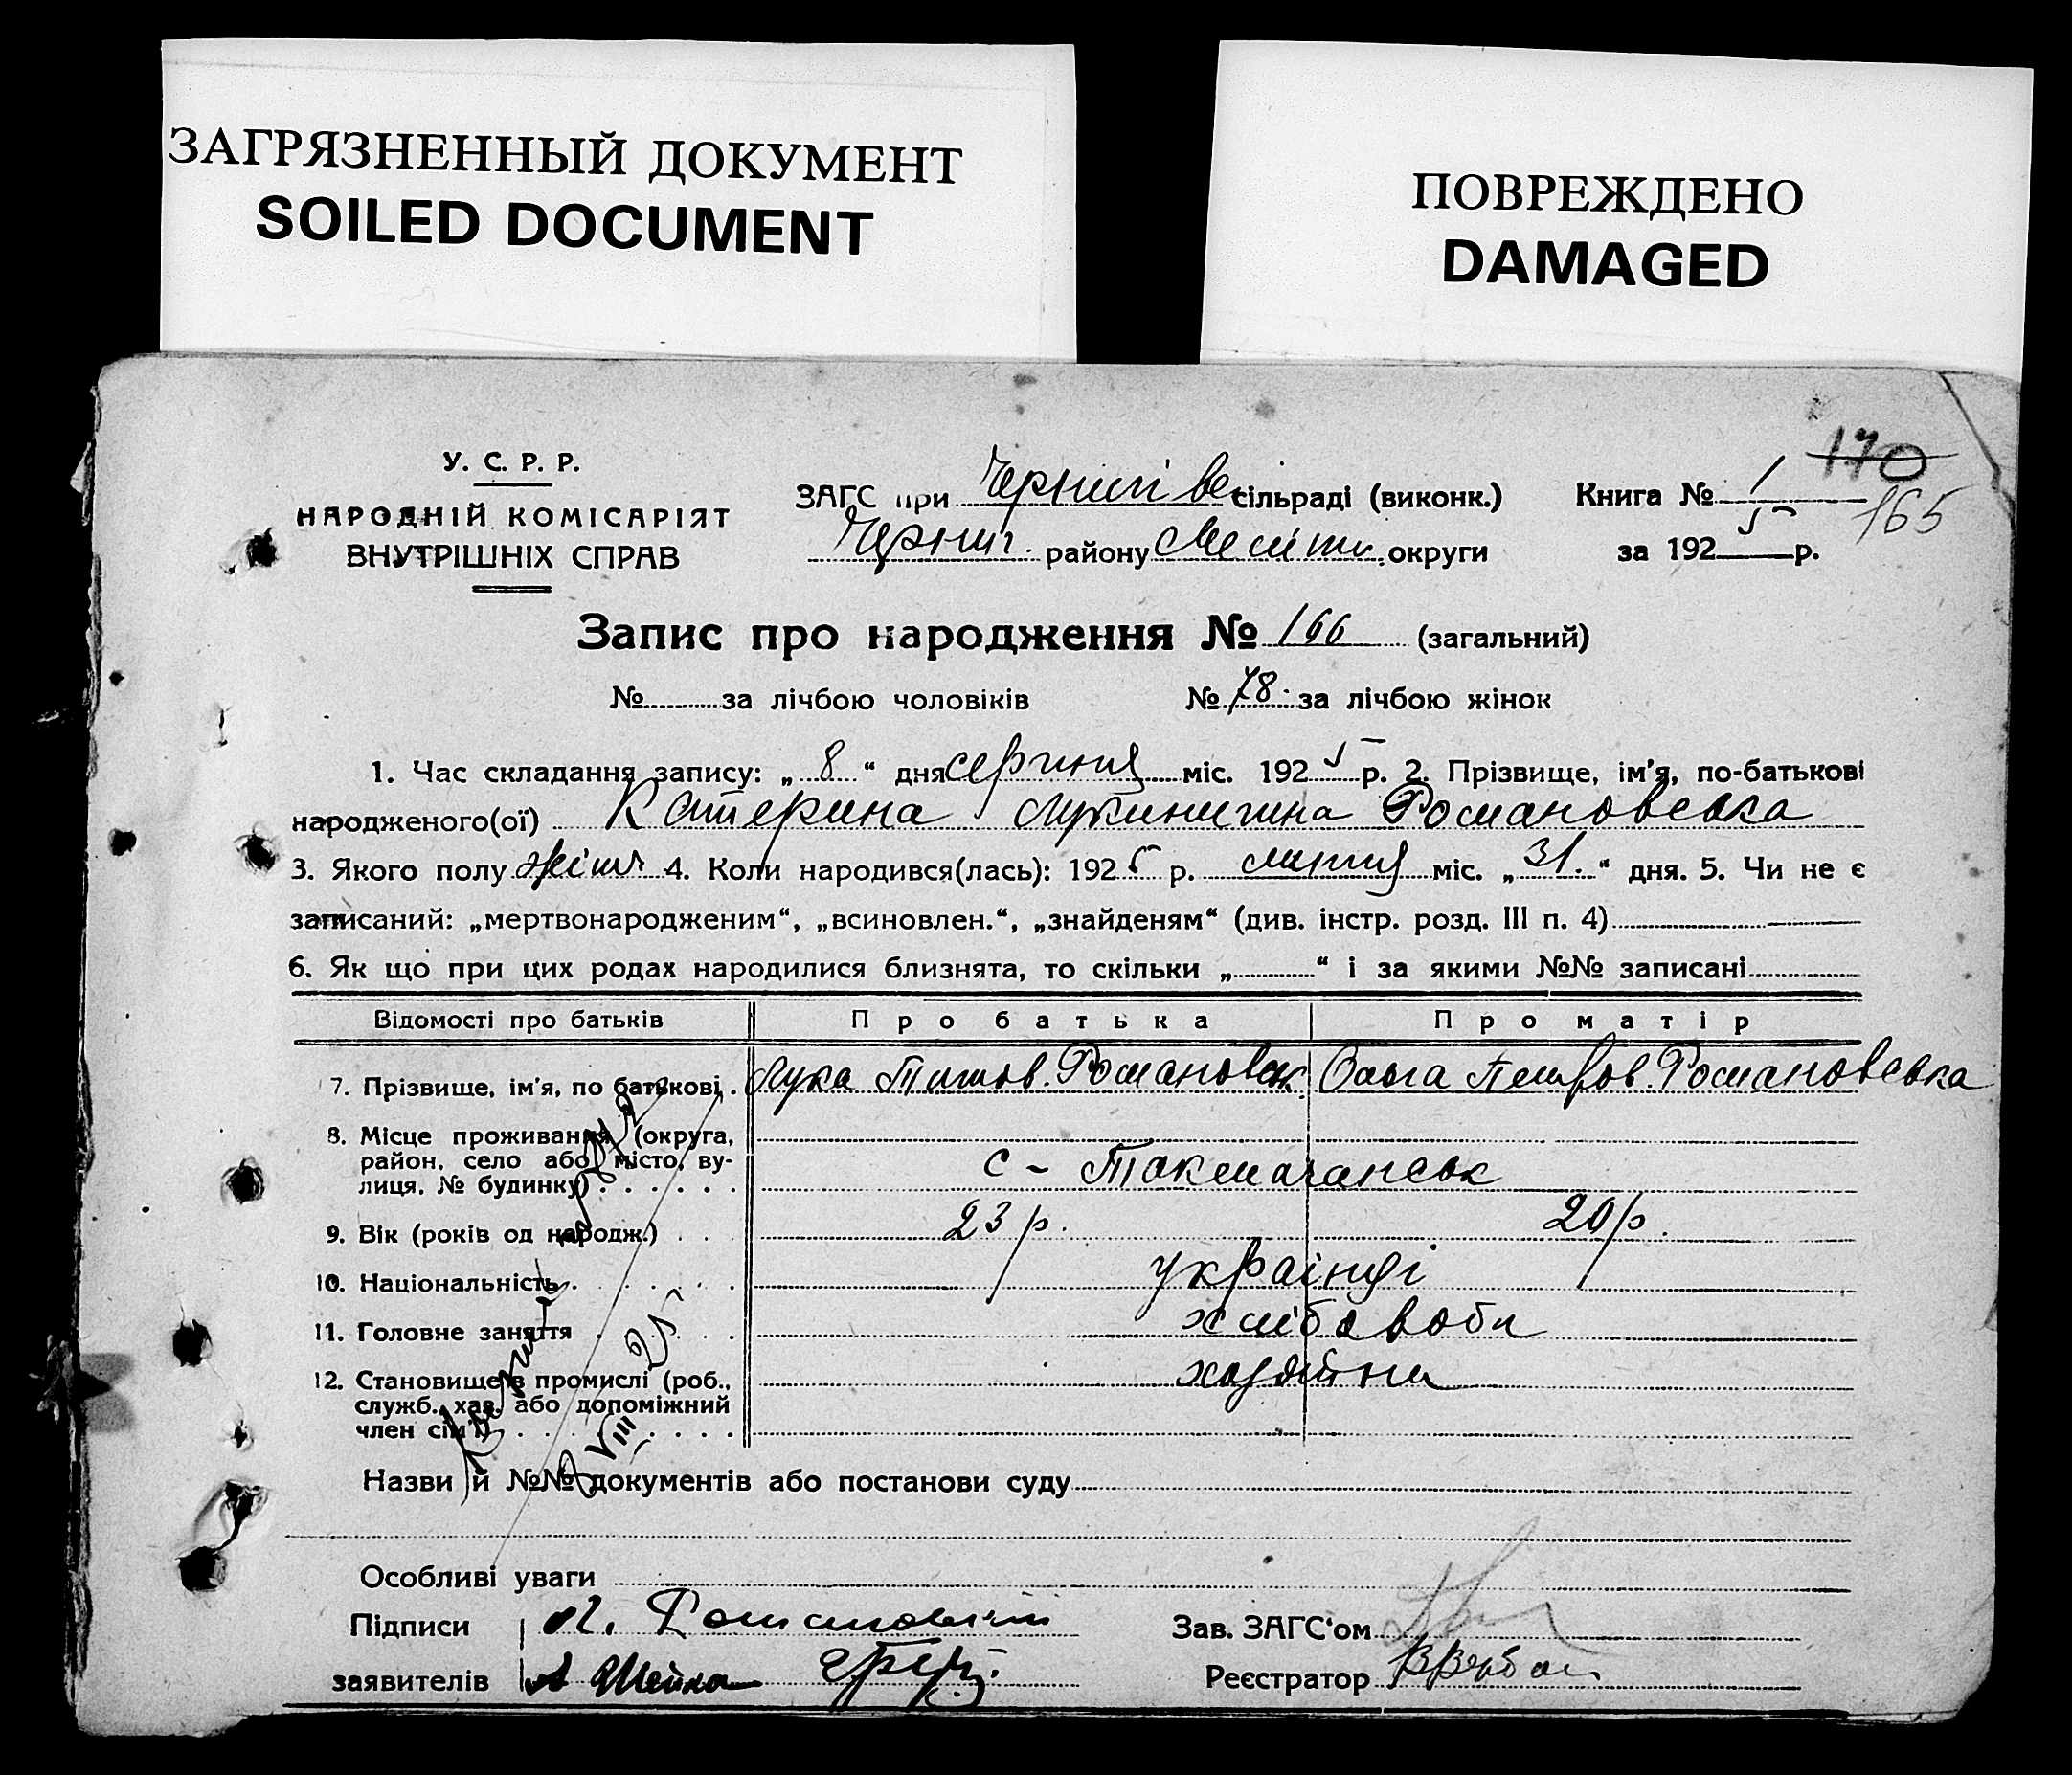 ЗАГРЯЗНЕННЫЙ ДОКУМЕНТ
SOILED DOCUMENT
ПОВРЕЖДЕНО
DAMAGED
170
165
У. С. Р. Р.
НАРОДНІЙ КОМІСАРІЯТ
ВНУТРІШНІХ СПРАВ
ЗАГС при Чернигівс сільраді (виконк.)
Черниг. району Меліт. округи
Книга № 1
за 1925 р.
Запис про народження № 166 (загальний)
№ за лічбою чоловіків № 78. за лічбою жінок
1. Час складання запису: „ 8 “ дня серпня міс. 1925 р. 2. Прізвище, ім'я, по-батькові
народженого(ої) Катерина Лукинична Романовська
3. Якого полу жіноч 4. Коли народився(лась): 1925 р. липня міс. „ 31. “ дня. 5. Чи не є
записаний: „мертвонародженим“, „всиновлен.“, „знайденям“ (див. інстр. розд. III п. 4)
6. Як що при цих родах народилися близнята, то скільки „ “ і за якими №№ записані
Відомості про батьків Про батька Про матір
7. Прізвище, ім'я, по батькові . Лука Титов. Романовськ. Ольга Петров. Романовська
8. Місце проживання (округа,
район, село або місто, ву-
лиця, № будинку) с - Токмачанськ
9. Вік (років од народж.) 23 р. 20 р.
10. Національність українці
11. Головне заняття хліборобы
12. Становище в промислі (роб.,
служб., хаз. або допоміжний
член сім'ї) хозяїни
VIII 25
Назви й №№ документів або постанови суду
Особливі уваги
Підписи Л. Романовский
заявителів А Шейка
Зав. ЗАГС'ом
Реєстратор